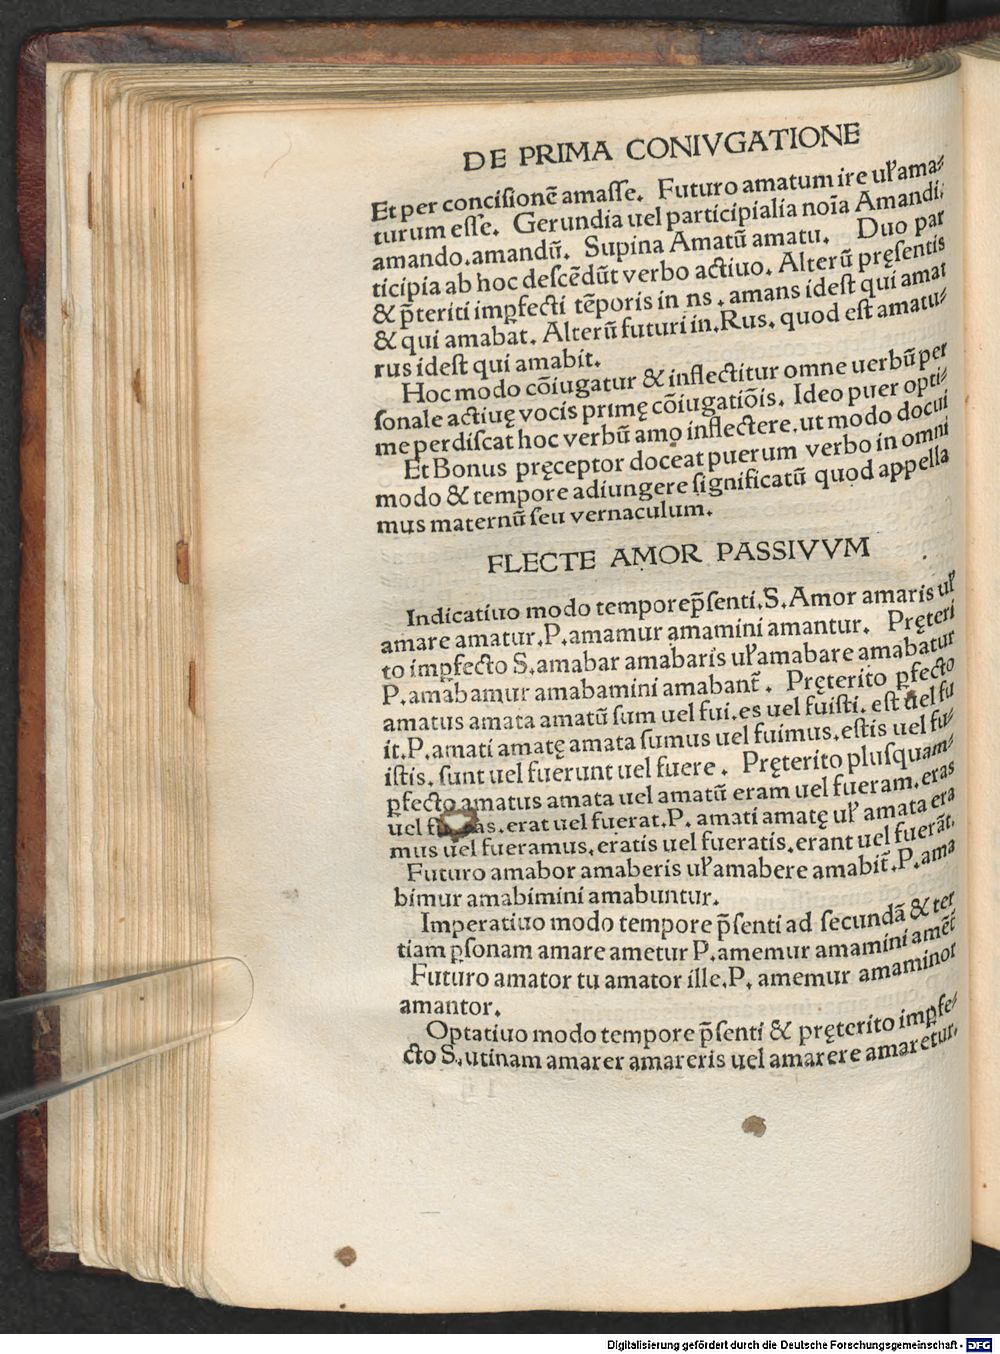 DE PRIMA CONIVGATIONE
Et per concisionē amasse. Futuro amatum ire uł ama⸗
turum esse. Gerundia uel participialia noīa Amandi.
amando.amandū. Supina Amatū amatu. Duo par
ticipia ab hoc descēdūt verbo actiuo. Alterū pręsentis
& p̄teriti imꝑfecti tēporis in ns . amans idest qui amat
& qui amabat. Alterū futuri in.Rus. quod est amatu⸗
rus idest qui amabit.
Hoc modo cōiugatur & inflectitur omne uerbū per
sonale actiuę vocis primę cōiugatiōis. Ideo puer opti⸗
me perdiscat hoc verbū amo inflectere.ut modo docui
Et Bonus pręceptor doceat puerum verbo in omni
modo & tempore adiungere significatū quod appella
mus maternū seu vernaculum.
FLECTE AMOR PASSIVVM
Indicatiuo modo tempore p̄senti.S.Amor amaris uł
amare amatur.P.amamur amamini amantur. Pręteri
to imꝑfecto S.amabar amabaris uł amabare amabatur
P.amabamur amabamini amabant̃. Pręterito ꝑfecto
amatus amata amatū sum uel fui.es uel fuisti. est uel fu
it.P.amati amatę amata sumus uel fuimus.estis uel fu⸗
istis. sunt uel fuerunt uel fuere . Pręterito plusquam⸗
ꝑfecto amatus amata uel amatū eram uel fueram.eras
uel as.erat uel fuerat.P. amati amatę uł amata era
mus uel fueramus.eratis uel fueratis.erant uel fuerāt.
Futuro amabor amaberis uł amabere amabit̃.P.ama
bimur amabimini amabuntur.
Imperatiuo modo tempore p̄senti ad secundā & ter
tiam ꝑsonam amare ametur P.amemur amamini amēt̃
Futuro amator tu amator ille.P. amemur amaminor
amantor.
Optatiuo modo tempore p̄senti & pręterito imꝑfe⸗
cto S.utinam amarer amareris uel amarere amaretur.
Digitalisierung gefördert durch die Deutsche Forschungsgemeinschaft - DFG